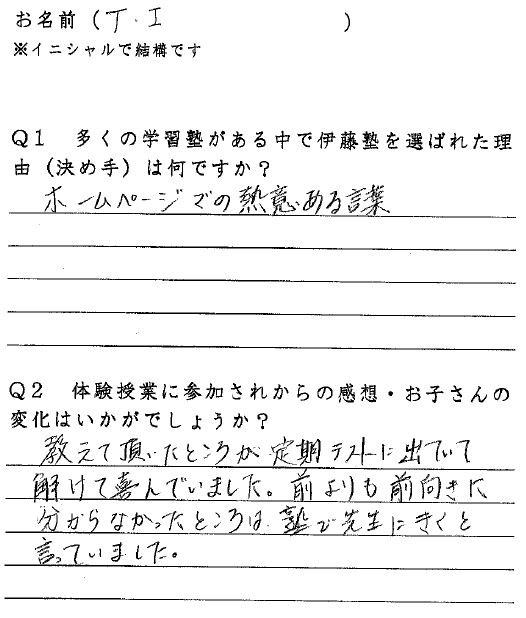 お名前（T.I　　　　　）
※イニシャルで結構です
Q1　多くの学習塾がある中で伊藤塾を選ばれた理
由（決め手）は何ですか？
ホームページでの熱意ある言葉
Q2　体験授業に参加されからの感想・お子さんの
変化はいかがでしょうか？
教えて頂いたところが定期テストに出ていて
解けて喜んでいました。前よりも前向きに
分からなかったところは、塾で先生にきくと
言っていました。